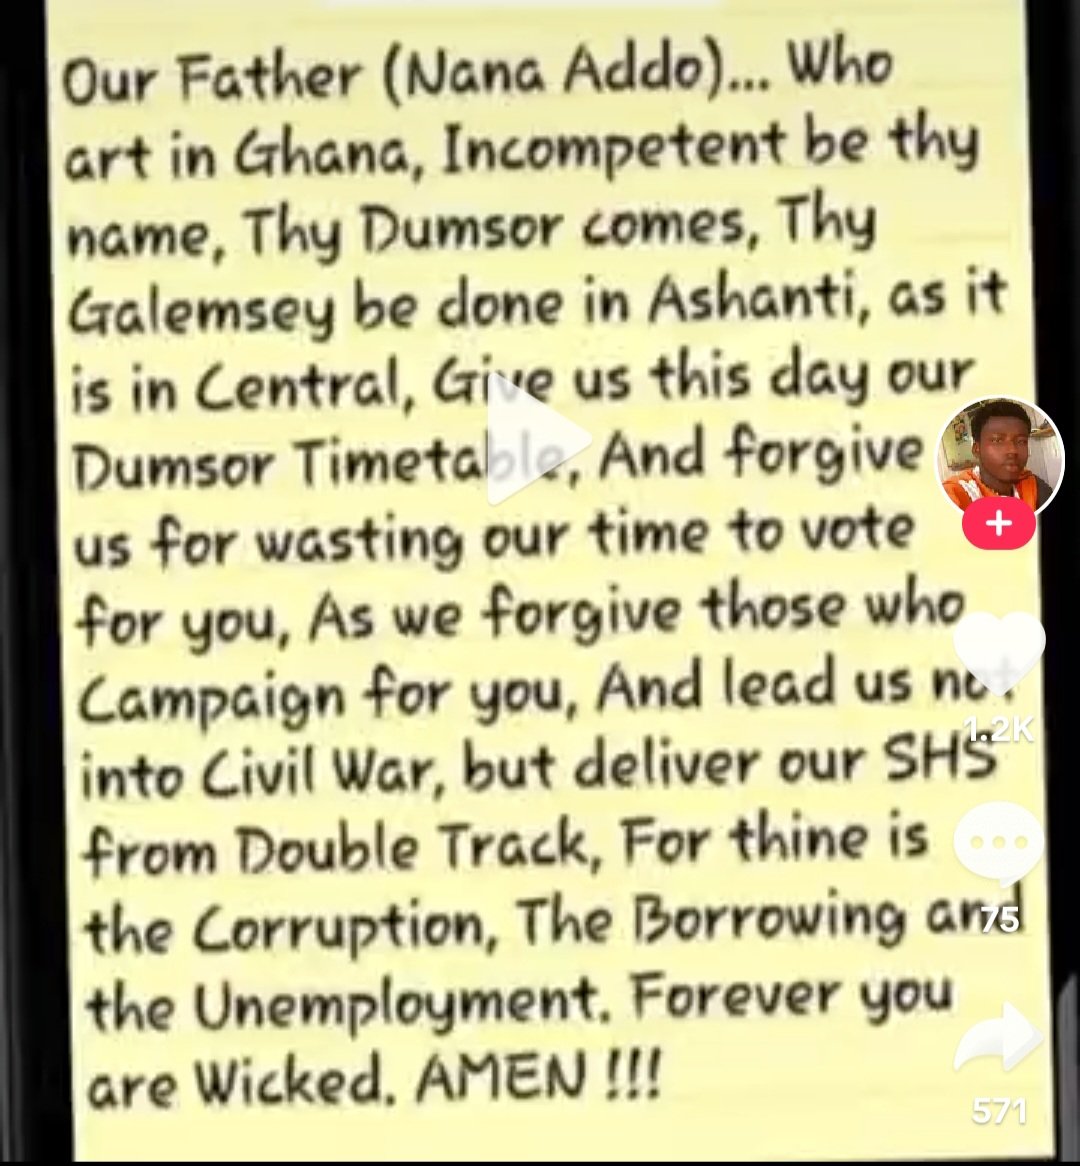 Our Father (Nana Addo)... Who
art in Ghana, Incompetent be thy
name, Thy Dumsor comes, Thy
Galemsey be done in Ashanti, as it
is in Central, Give us this day our
Dumsor Timetable, And forgive
us for wasting our time to vote
for you, As we forgive those who
Campaign for you, And lead us not
into Civil War, but deliver our SHS
from Double Track, For thine is
the Corruption, The Borrowing and
the Unemployment. Forever you
are Wicked. AMEN !!!
1.2K
75
571